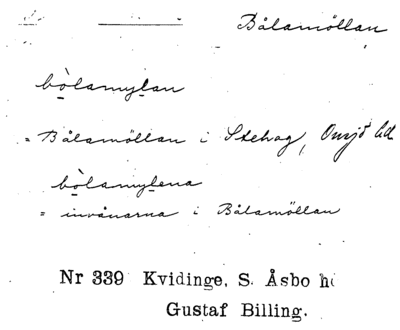 Bålamöllan
bòlamylan
= Bålamöllan i Stehag, Onsjö hd
bòlamylena
= invånarna i Bålamöllan
Nr 339 Kvidinge, S. Åsbo h
Gustaf Billing.